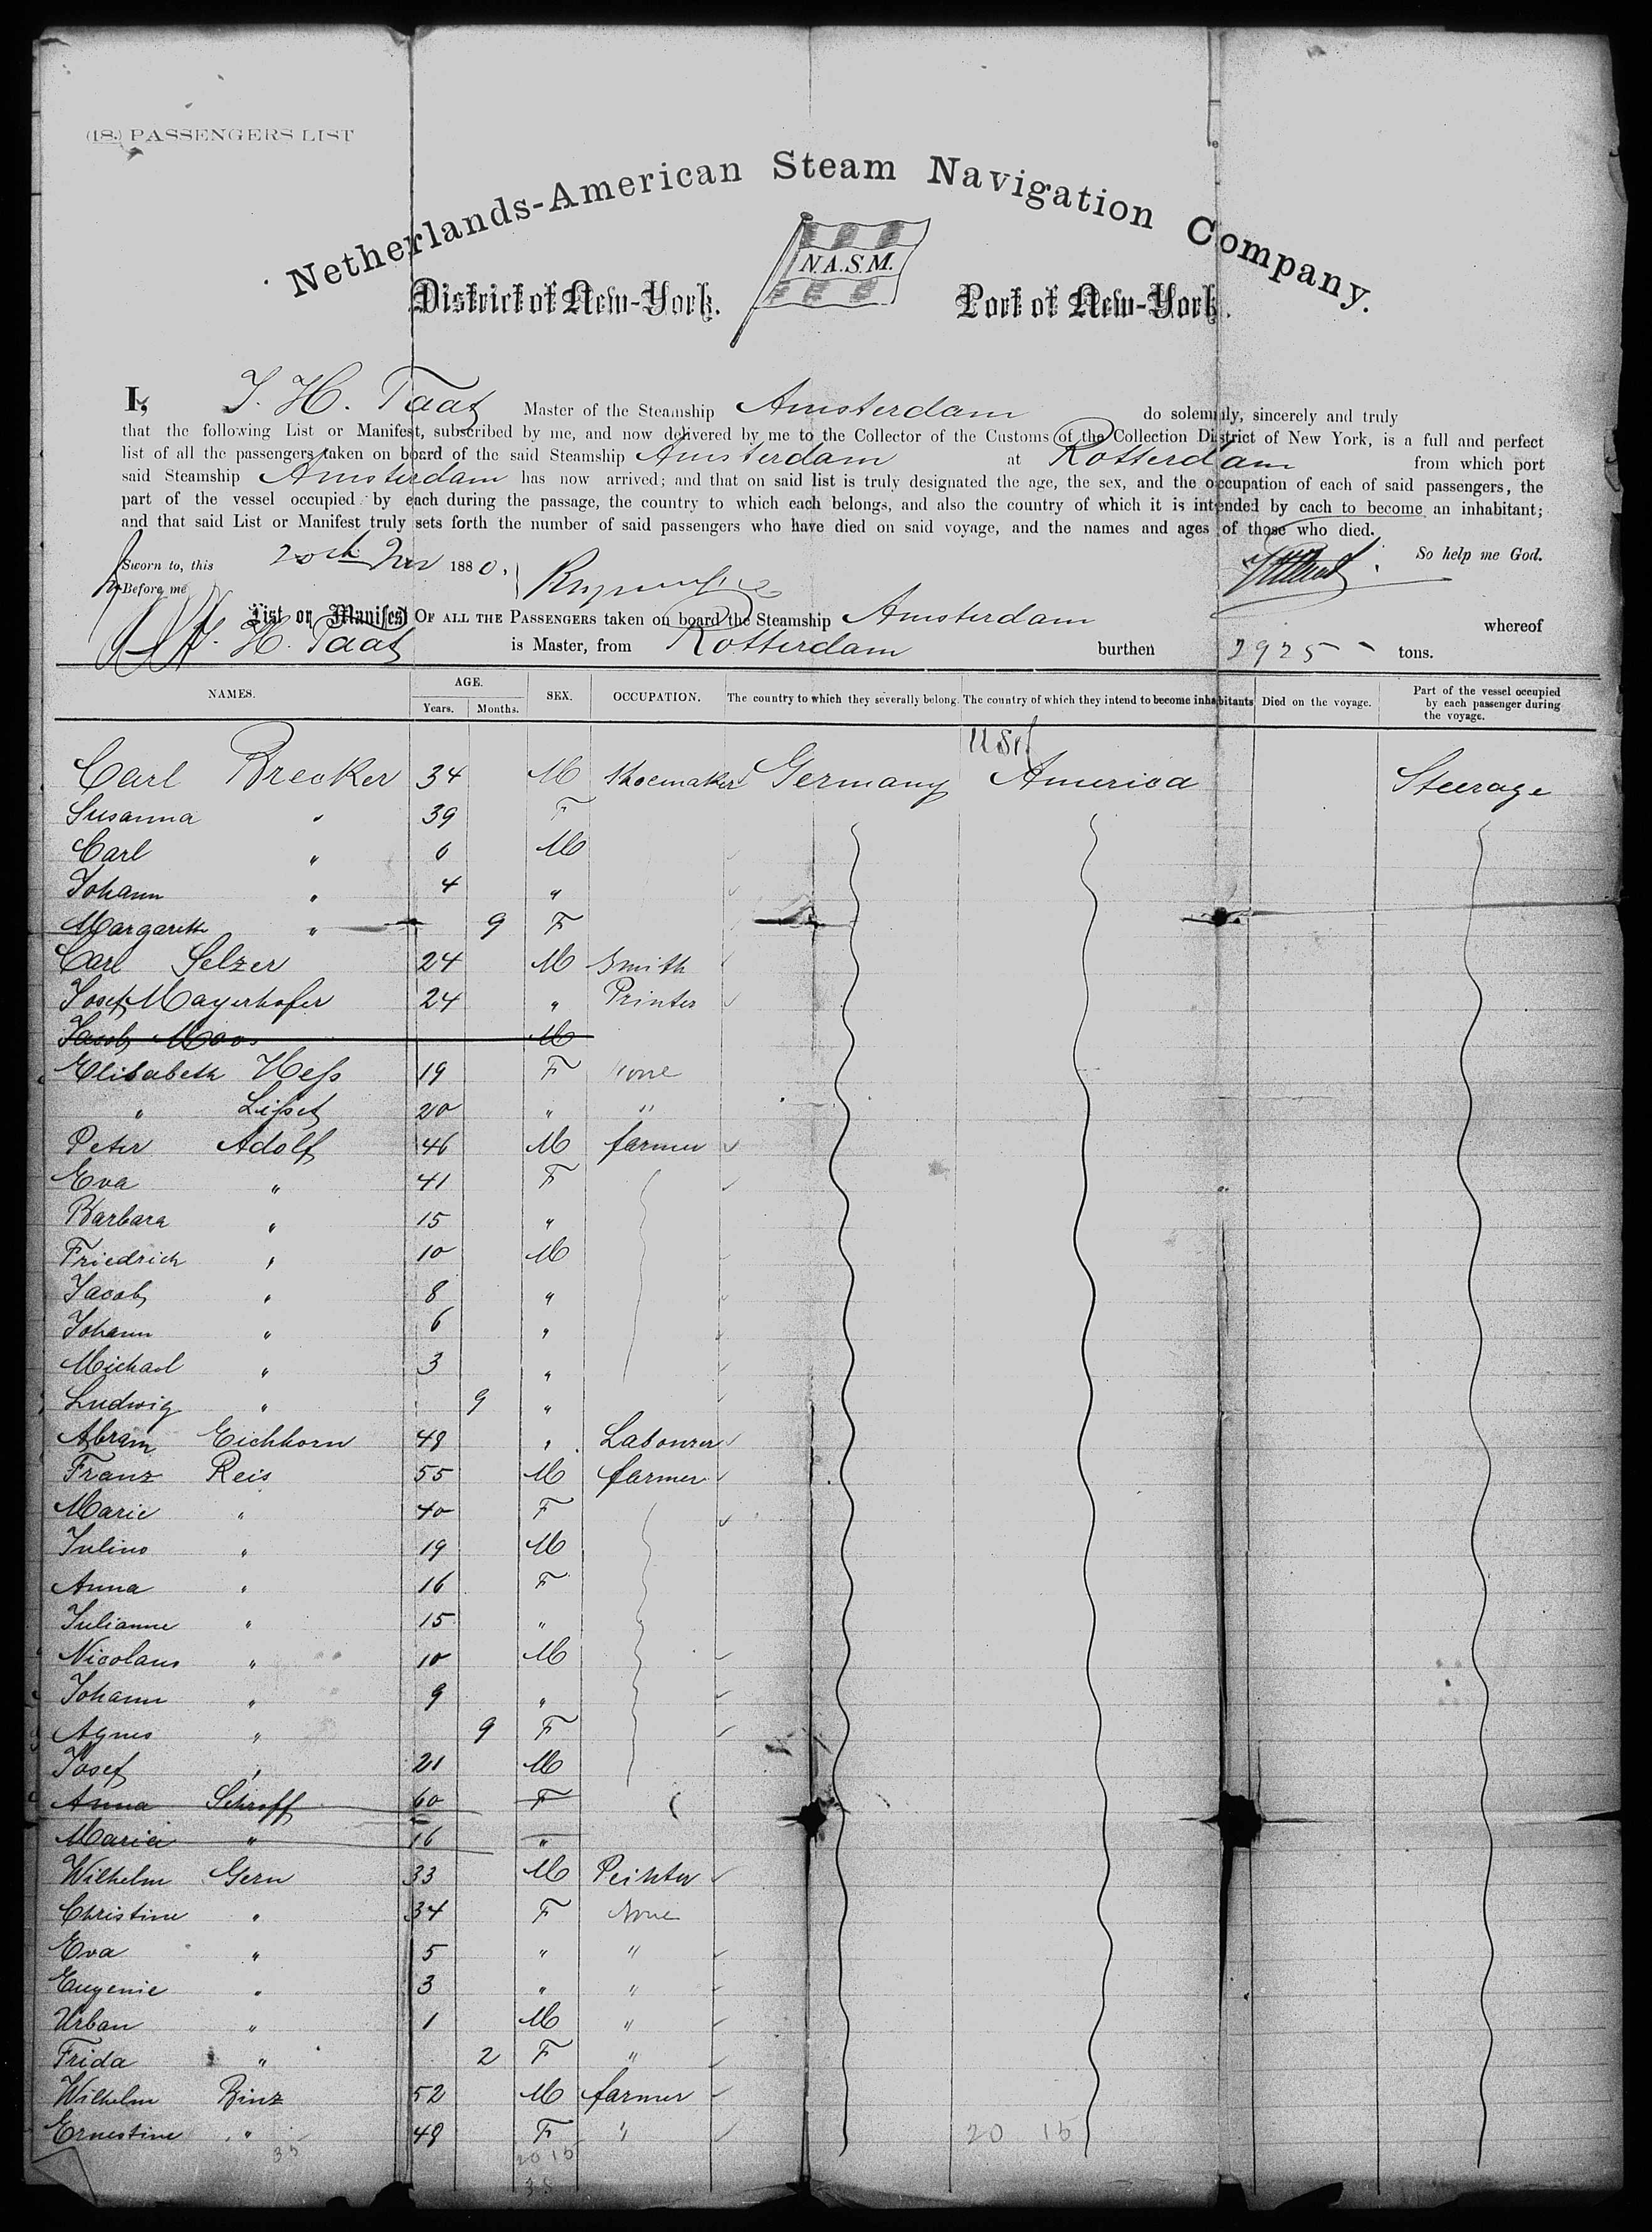 (18.) PASSENGERS LIST
Netherlands-American Steam Navigation Company.
N.A.S.M.
District of New-York. Port of New-York.
I, J. H. Taat Master of the Steamship Amsterdam do solemnly, sincerely and truly
that the following List or Manifest, subscribed by me, and now delivered by me to the Collector of the Customs of the Collection District of New York, is a full and perfect
list of all the passengers taken on board of the said Steamship Amsterdam at Rotterdam from which port
said Steamship Amsterdam has now arrived; and that on said list is truly designated the age, the sex, and the occupation of each of said passengers, the
part of the vessel occupied by each during the passage, the country to which each belongs, and also the country of which it is intended by each to become an inhabitant;
and that said List or Manifest truly sets forth the number of said passengers who have died on said voyage, and the names and ages of those who died.
So help me God.
Sworn to, this 20th Nov 1880.
Before me
List or Manifest OF ALL THE PASSENGERS taken on board the Steamship Amsterdam whereof
J. H. Taat is Master, from Rotterdam burthen 2925 tons.
NAMES. AGE. Years. Months. SEX. OCCUPATION. The country to which they severally belong. The country of which they intend to become inhabitants Died on the voyage. Part of the vessel occupied by each passenger during the voyage.
USA
Carl Brecker 34 M Shoemaker Germany America Steerage
Susanna " 39 F
Carl " 6 M
Johann " 4 "
Margareth " 9 F
Carl Selzer 24 M Smith
Josef Mayerhofer 24 " Printer
Jacob Moos M
Elisabeth Heß 19 F None
" Lißet 20 " "
Peter Adolf 46 M farmer
Eva " 41 F
Barbara " 15 "
Friedrich " 10 M
Jacob " 8 "
Johann " 6 "
Michael " 3 "
Ludwig " 9 "
Abram Eichhorn 48 " Labourer
Franz Reis 55 M farmer
Marie " 40 F
Julius " 19 M
Anna " 16 F
Julianne " 15 "
Nicolaus " 10 M
Johann " 9 "
Agnes " 9 F
Josef " 21 M
Anna Schroff 60 F
Maria " 16 "
Wilhelm Gern 33 M Peinter
Christine " 34 F None
Eva " 5 " "
Eugenie " 3 " "
Urban " 1 M "
Frida " 2 F "
Wilhelm Binz 52 M farmer
Ernestine " 48 F "
20 15
35 20 15
35